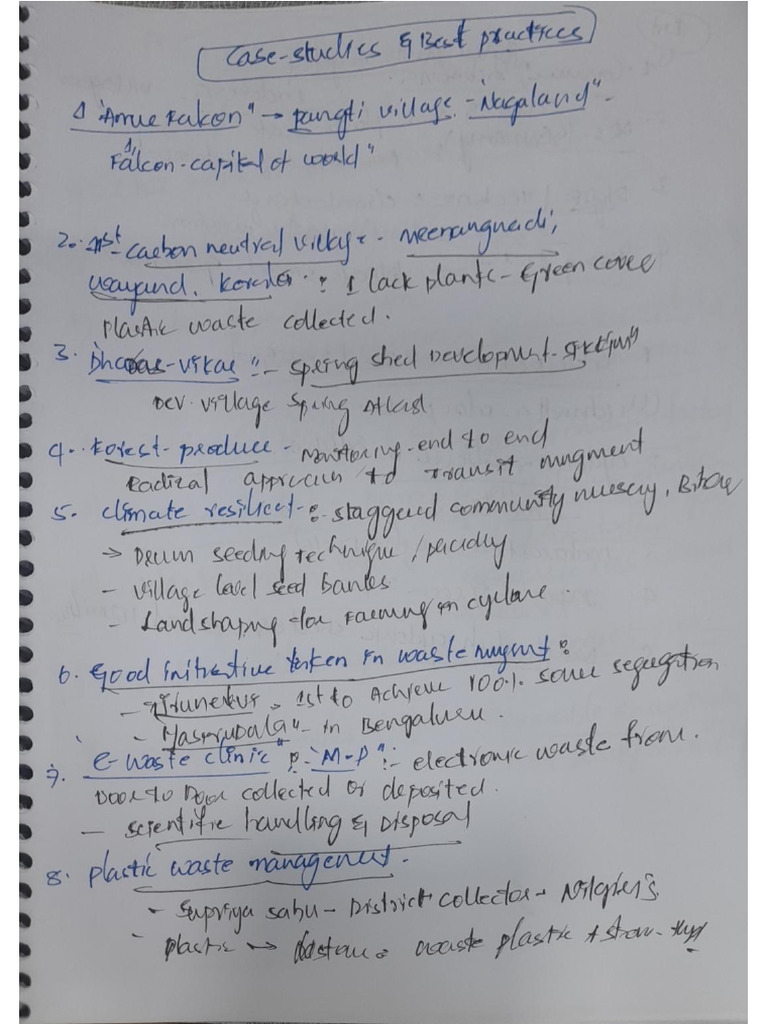 Case-studies & Best practices
1 "Amue Falcon" → Pangti village - "Nagaland"
"Falcon-capital of world"
2. 1st carbon neutral village - Meenangnadi,
Wayand. Kerala : 1 lack plants - Green cover
plastic waste collected.
3. Dhara-vikas" :- spring shed Development - sikkim"
Dev. village spring Atlas
4. Forest-produce - Monitoring end to end
Radical approach to transit mngment
5. climate resilient - : staggered community nursery, Bihar
→ Drum seeding technique / paddy
- village level seed banks
- Landshaping for Farming in cyclone.
6. Good initiative taken in waste mngmt :
- 1st to Achieve 100% source segregation
- in Bengaluru.
7. e-waste clinic" : "M-P" :- electronic waste from.
Door to Door collected or deposited.
- scientific handling & Disposal
8. plastic waste management.
- Supriya sahu - District collector - Nilgiri's
- plastic → waste plastic +